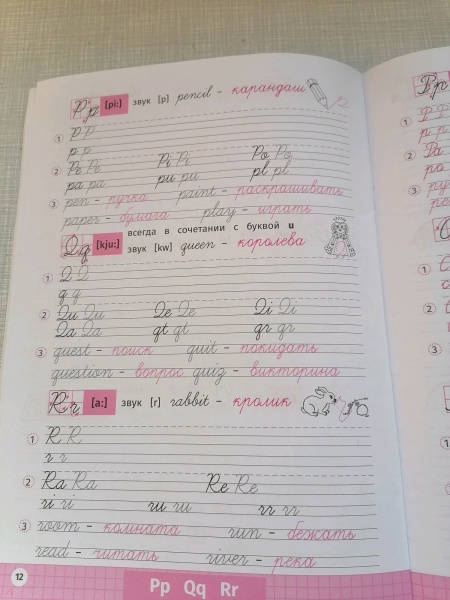 Pp [pi:] звук [p] pencil - карандаш
1 P P
p p
2 Pe Pe Pi Pi Po Po
pa pa pu pu pl pl
3 pen - ручка paint - раскрашивать
paper - бумага play - играть
Qq [kju:] всегда в сочетании с буквой u
звук [kw] queen - королева
1 Q Q
q q
2 Qu Qu Qe Qe Qi Qi
Qa Qa qt qt qr qr
3 quest - поиск quit - покидать
question - вопрос quiz - викторина
Rr [a:] звук [r] rabbit - кролик
1 R R
r r
2 Ra Ra Re Re
ri ri ru ru rr rr
3 room - комната run - бежать
read - читать river - река
12
Pp Qq Rr
Pp
1 P P
p p
2 Pa
po
3
1
2
3
1